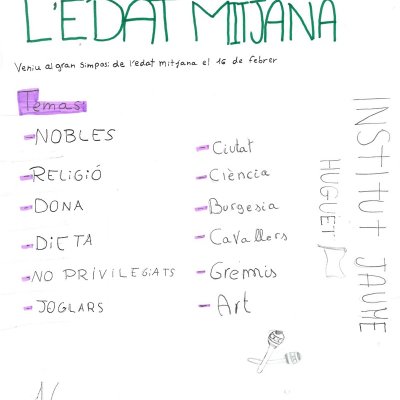 L'EDAT MITJANA
Veniu al gran simposi de l'edat mitjana el 16 de febrer
Temas:
-NOBLES
-RELIGIÓ
-DONA
-DIETA
-NO PRIVILEGIATS
-JOGLARS
-Ciutat
-Ciència
-Burgesia
-Cavallers
-Gremis
-Art
INSTITUT JAUME
HUGUET